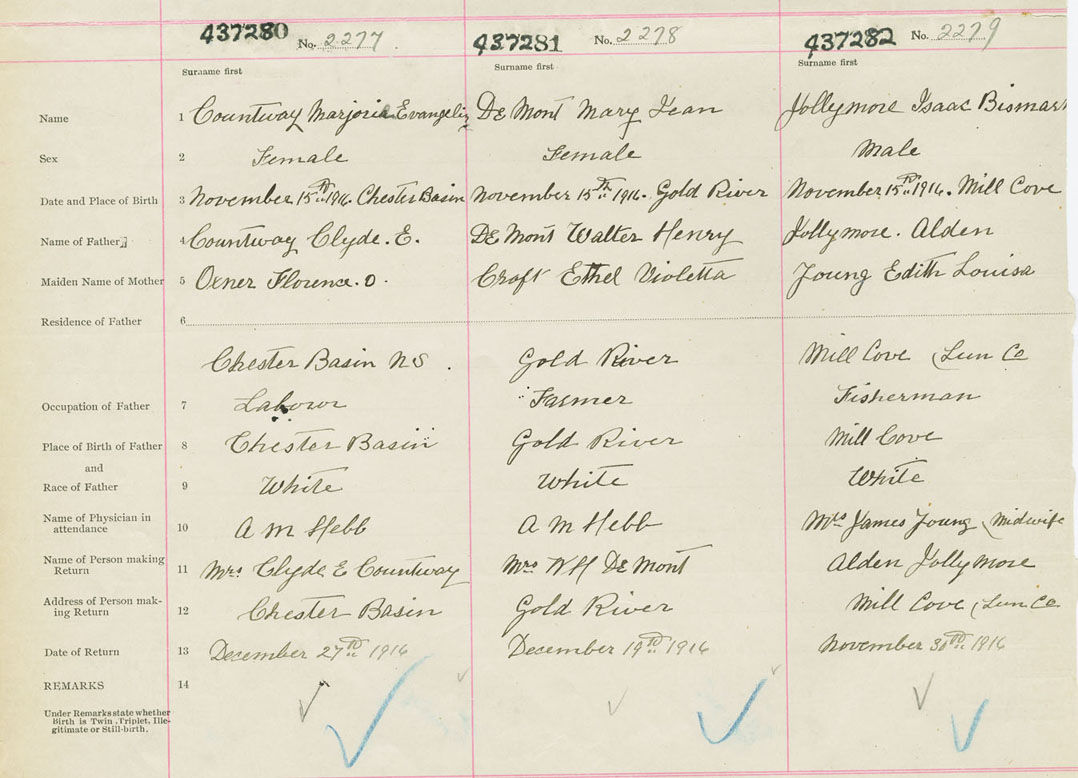 437280 No. 2277 437281 No. 2278 437282 No. 2279
Surname first Surname first Surname first
Name 1 Countway Marjorie Evangelin De Mont Mary Jean Jollymore Isaac Bismar
Sex 2 Female Female Male
Date and Place of Birth 3 November 15th 1916. Chester Basin November 15th 1916. Gold River November 15th 1916. Mill Cove
Name of Father 4 Countway Clyde. E. De Mont Walter Henry Jollymore. Alden
Maiden Name of Mother 5 Oxner Florence. O. Croft Ethel Violetta Young Edith Louisa
Residence of Father 6
Chester Basin NS. Gold River Mill Cove (Lun Co
Occupation of Father 7 Labour Farmer Fisherman
Place of Birth of Father 8 Chester Basin Gold River Mill Cove
and
Race of Father 9 White White White
Name of Physician in
attendance 10 A M Hebb A M Hebb Mrs James Young (Midwife
Name of Person making
Return 11 Mrs Clyde E Countway Mrs W H De Mont Alden Jollymore
Address of Person mak-
ing Return 12 Chester Basin Gold River Mill Cove (Lun Co
Date of Return 13 December 27th 1916 December 19th 1916 November 30th 1916
REMARKS 14
Under Remarks state whether
Birth is Twin, Triplet, Ille-
gitimate or Still-birth.